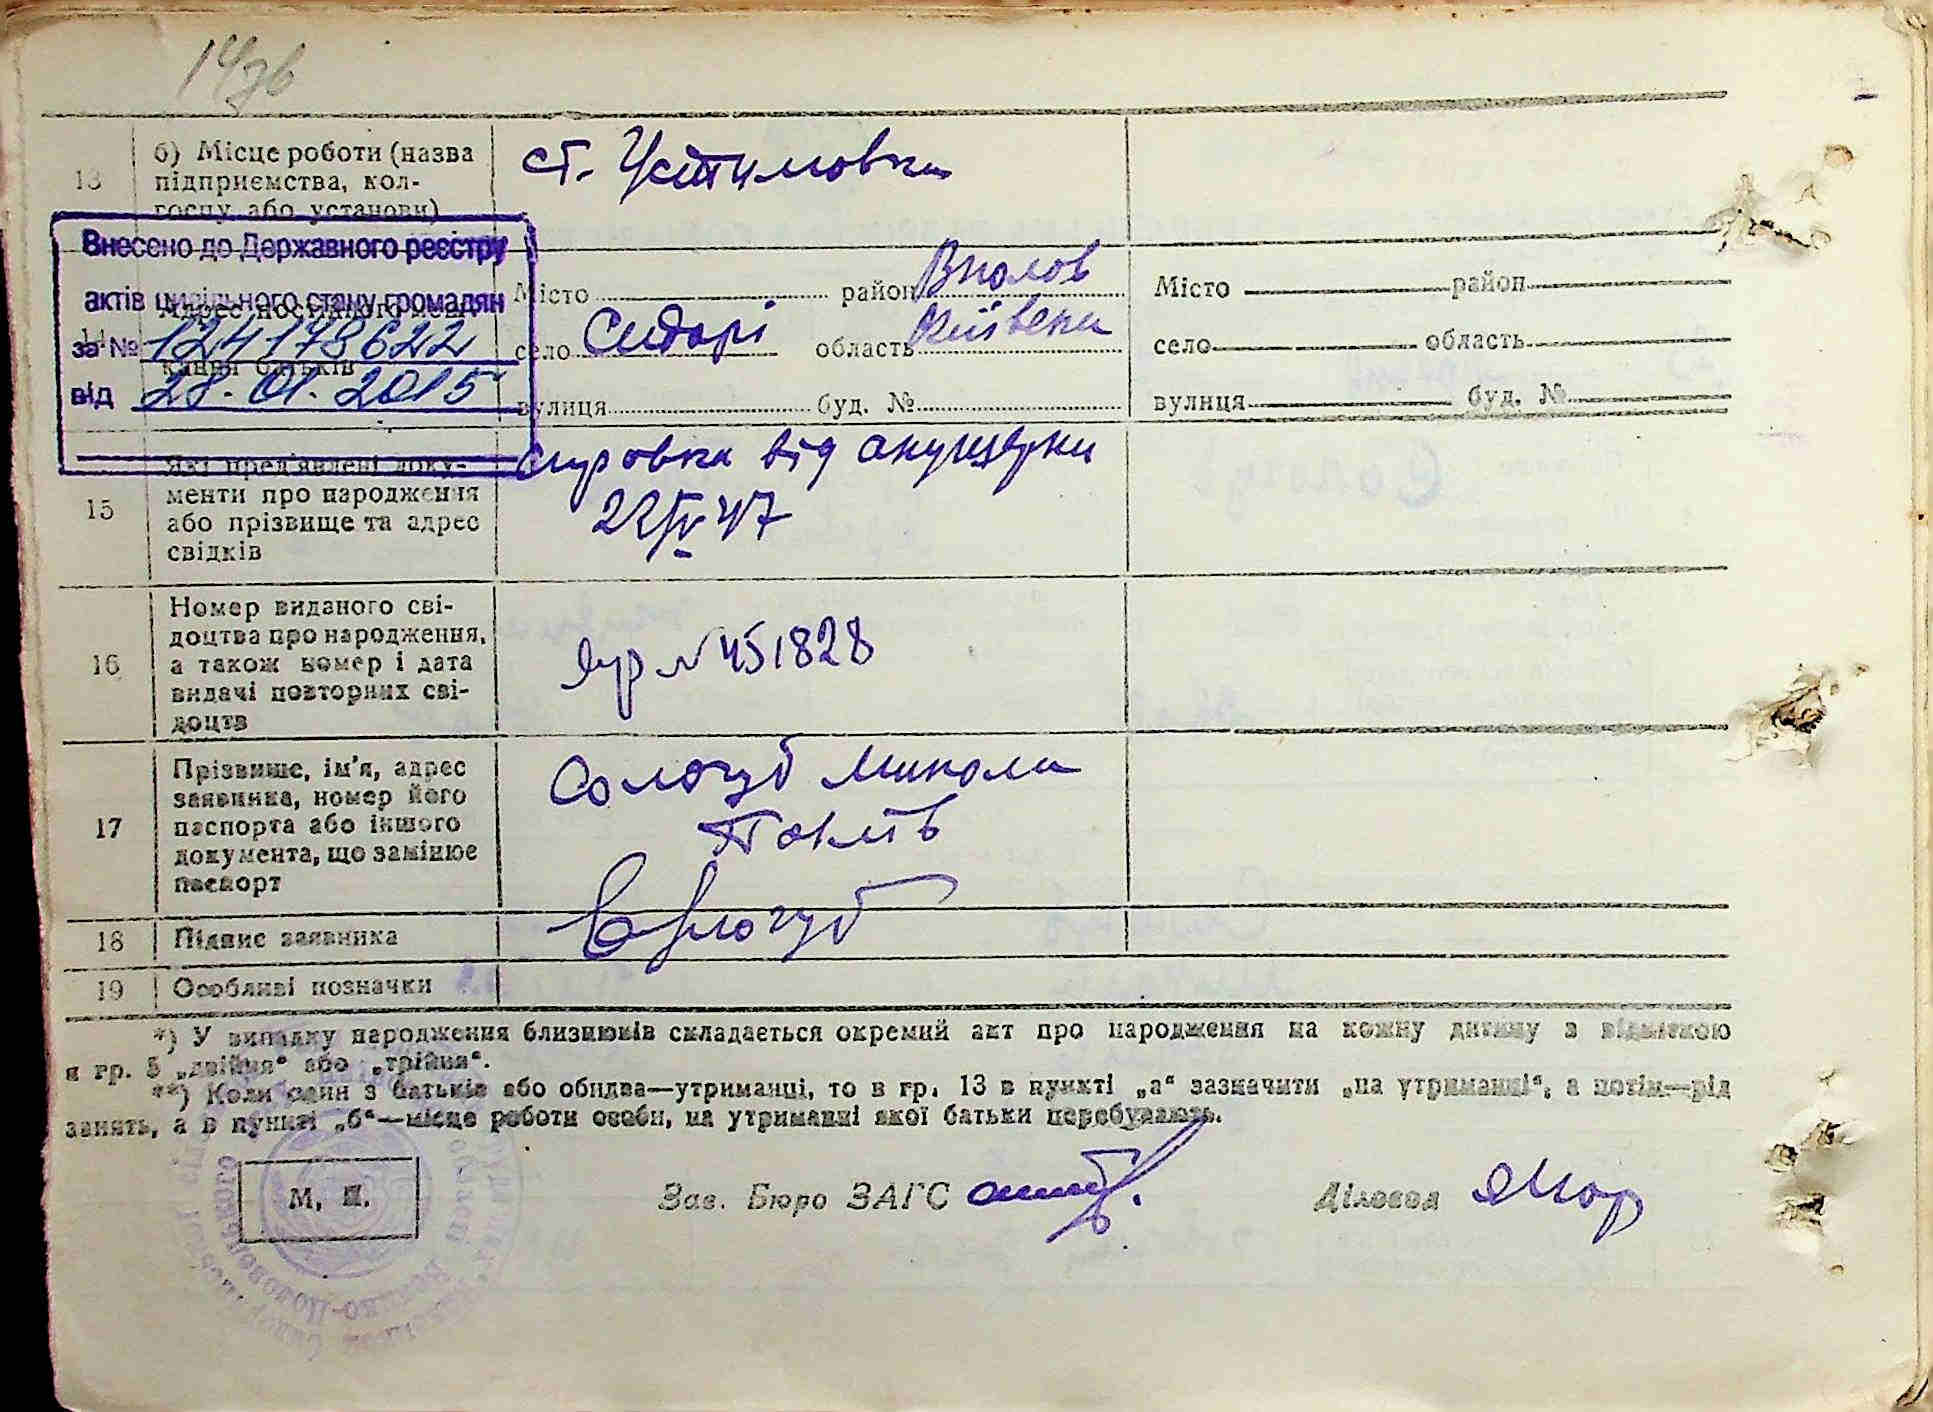 14зв
13
б) Місце роботи (назва
підприємства, кол-
госпу або установи)
ст. Устимовка
Внесено до Державного реєстру
актів цивільного стану громадян
за № 124178622
від 28.01.2015
Адрес постійного меш-
кання батьків
Місто район
село Сидорі область Київська
вулиця буд. №
Місто район
село область
вулиця буд. №
15
Які пред'явлені доку-
менти про народження
або прізвище та адрес
свідків
від акушерки
22/IV 47
16
Номер виданого сві-
доцтва про народження,
а також номер і дата
видачі повторних сві-
доцтв
№ 451828
17
Прізвище, ім'я, адрес
заявника, номер його
паспорта або іншого
документа, що замінює
паспорт
Сологуб Микола
18
Підпис заявника
Сологуб
19
Особливі позначки
*) У випадку народження близнюків складається окремий акт про народження на кожну дитину з відміткою
в гр. 5 „двійня“ або „трійня“.
**) Коли один з батьків або обидва—утриманці, то в гр. 13 в пункті „а“ зазначити „на утриманні“, а потім—рід
занять, а в пункті „б“—місце роботи особи, на утриманні якої батьки перебувають.
М. П.
Зав. Бюро ЗАГС
Діловод